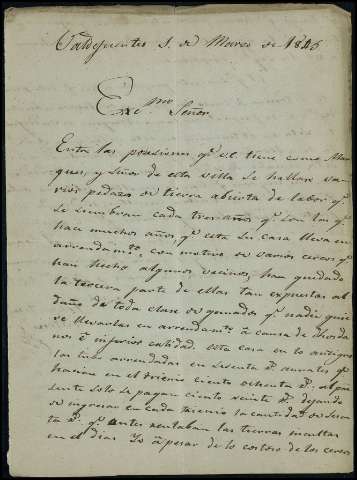 Valdefuentes 1. de Marzo de 1846
Exc.mo Señor.
Entre las posesiones q.e V.E. tiene como Mar
ques, y Señor de esta villa se hallan va
rios pedazos de tierra abierta de labor q.e
se siembran cada tres años q.e son los q.e
hace muchos años, q.e esta su casa lleva en
arrendam.to, con motivo de varios cercos q.e
han hecho algunos vecinos, han quedado
la tercera parte de ellas tan expuestas al
daño de toda clase de ganados q.e nadie quie
re llevarlas en arrendam.to a causa de
nos é inferior calidad. esta casa en lo antiguo
las tuvo arrendadas en sesenta r.s annales q.e
hacian en el trienio ciento ochenta r.s el pre
sente solo se pagan ciento veinte r.s dejando
de ingresar en cada trienio la cantidad de sesen
ta r.s q.e antes rentaban las tierras incultas
en el dia. Yo á pesar de lo costoso de los cercos